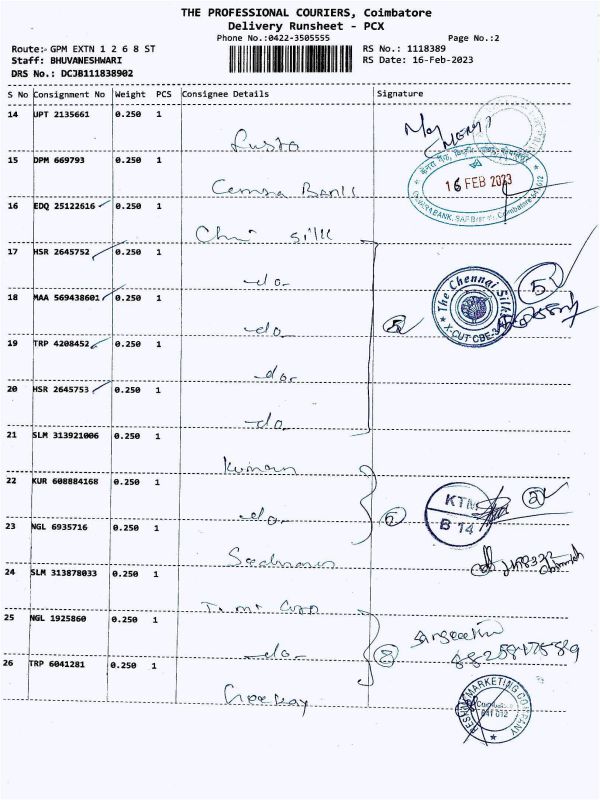 THE PROFESSIONAL COURIERS, Coimbatore
Delivery Runsheet - PCX
Phone No.:0422-3505555 Page No.:2
Route:- GPM EXTN 1 2 6 8 ST RS No.: 1118389
Staff: BHUVANESHWARI RS Date: 16-Feb-2023
DRS No.: DCJB111838902
S No Consignment No Weight PCS Consignee Details Signature
14 UPT 2135661 0.250 1
15 DPM 669793 0.250 1
Bank
16 FEB 2023
CANARA BANK, SAF Branch, Coimbatore 641 012
16 EDQ 25122616 0.250 1
silk
17 HSR 2645752 0.250 1
-do-
The Chennai Silks
X-CUT CBE-
5
18 MAA 569438601 0.250 1
-do-
5
19 TRP 4208452 0.250 1
-do-
20 HSR 2645753 0.250 1
-do-
21 SLM 313921006 0.250 1
Kumaran
22 KUR 608884168 0.250 1
-do-
KTM
B 14
2
23 NGL 6935716 0.250 1
24 SLM 313878033 0.250 1
25 NGL 1925860 0.250 1
-do-
Sangeetha
26 TRP 6041281 0.250 1
MARKETING COMPANY